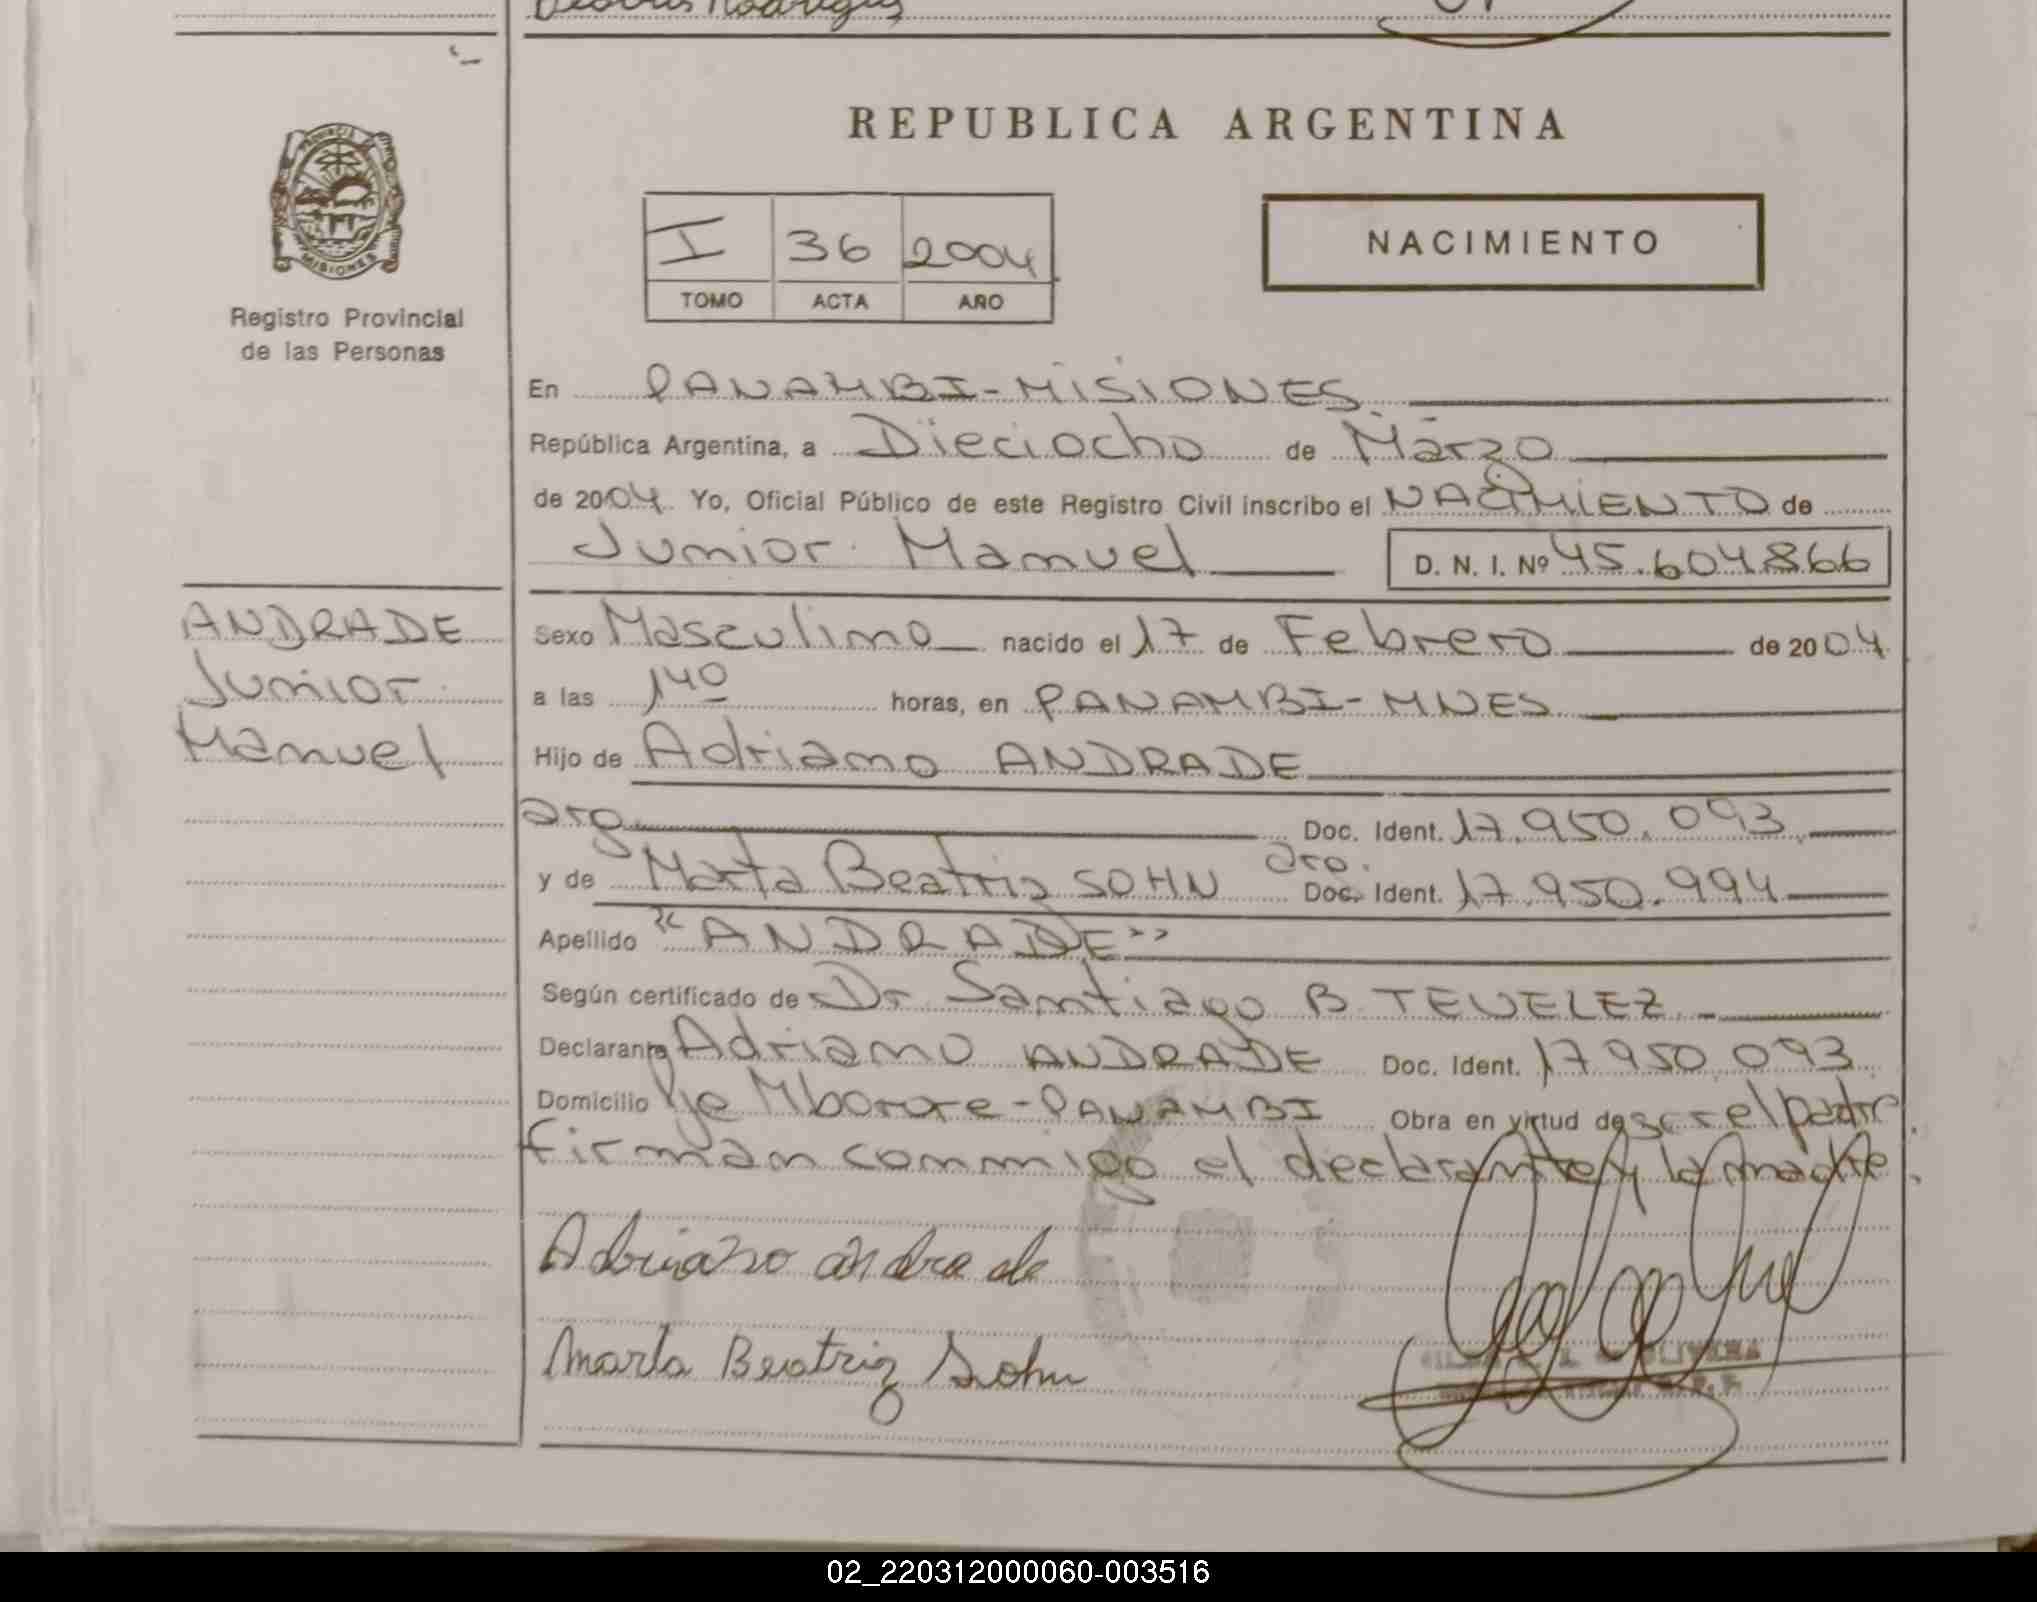 Rodriguez
REPUBLICA ARGENTINA
PROVINCIA
MISIONES
Registro Provincial
de las Personas
I 36 2004
TOMO ACTA AÑO
NACIMIENTO
En PANAMBI-MISIONES.
República Argentina, a Dieciocho de Marzo
de 2004. Yo, Oficial Público de este Registro Civil inscribo el NACIMIENTO de
Junior Manuel D. N. I. Nº 45.604866
ANDRADE
Junior
Manuel
Sexo Masculino nacido el 17 de Febrero de 2004.
a las 140 horas, en PANAMBI-MNES
Hijo de Adriano ANDRADE
arg. Doc. Ident. 17.950.093
y de Marta Beatriz SOHN arg. Doc. Ident. 17.950.994
Apellido "ANDRADE"
Según certificado de Dr Santiago B. TEVELEZ
Declarante Adriano ANDRADE Doc. Ident. 17950.093
Domicilio Mborore-PANAMBI Obra en virtud de ser el padre
firman conmigo el declarante y la madre.
Adriano andrade
Marta Beatriz Sohn
OLIVERA
02_220312000060-003516